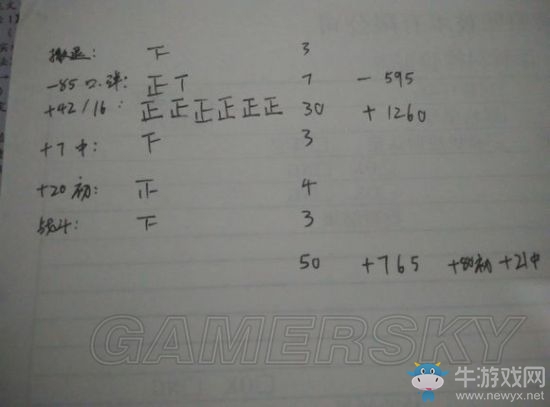 撤退: 下 3
-85 口球: 正丅 7 -595
+42/16: 正正正正正正 30 +1260
+7中: 下 3
+20初: 正 4
战斗: 下 3
50 +765 +80初 +21中
GAMERSKY
牛游戏网
www.newyx.net